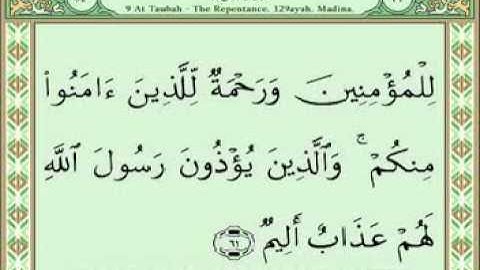 9 At Taubah - The Repentance, 129ayah, Madina.
لِلْمُؤْمِنِينَ وَرَحْمَةٌ لِّلَّذِينَ ءَامَنُوا۟
مِنكُمْ ۚ وَٱلَّذِينَ يُؤْذُونَ رَسُولَ ٱللَّهِ
لَهُمْ عَذَابٌ أَلِيمٌ ٦١